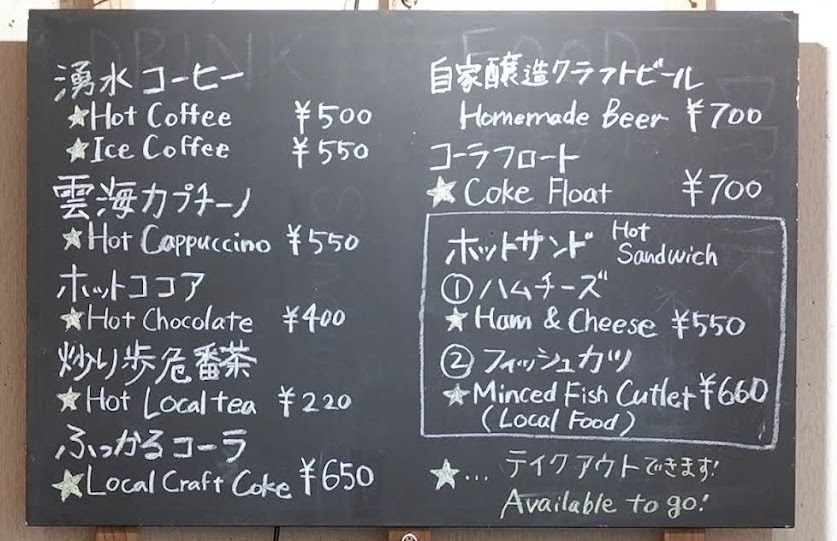 湧水コーヒー
★Hot Coffee ¥500
★Ice Coffee ¥550
雲海カプチーノ
★Hot Cappuccino ¥550
ホットココア
★Hot Chocolate ¥400
炒り歩危番茶
★Hot Local tea ¥220
ふっかるコーラ
★Local Craft Coke ¥650
自家醸造クラフトビール
Homemade Beer ¥700
コーラフロート
★Coke Float ¥700
ホットサンド Hot Sandwich
①ハムチーズ
★Ham & Cheese ¥550
②フィッシュカツ
★Minced Fish Cutlet ¥660
(Local Food)
★... テイクアウトできます!
Available to go!